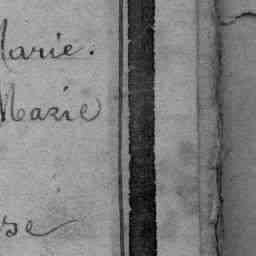 Marie.
Marie
se